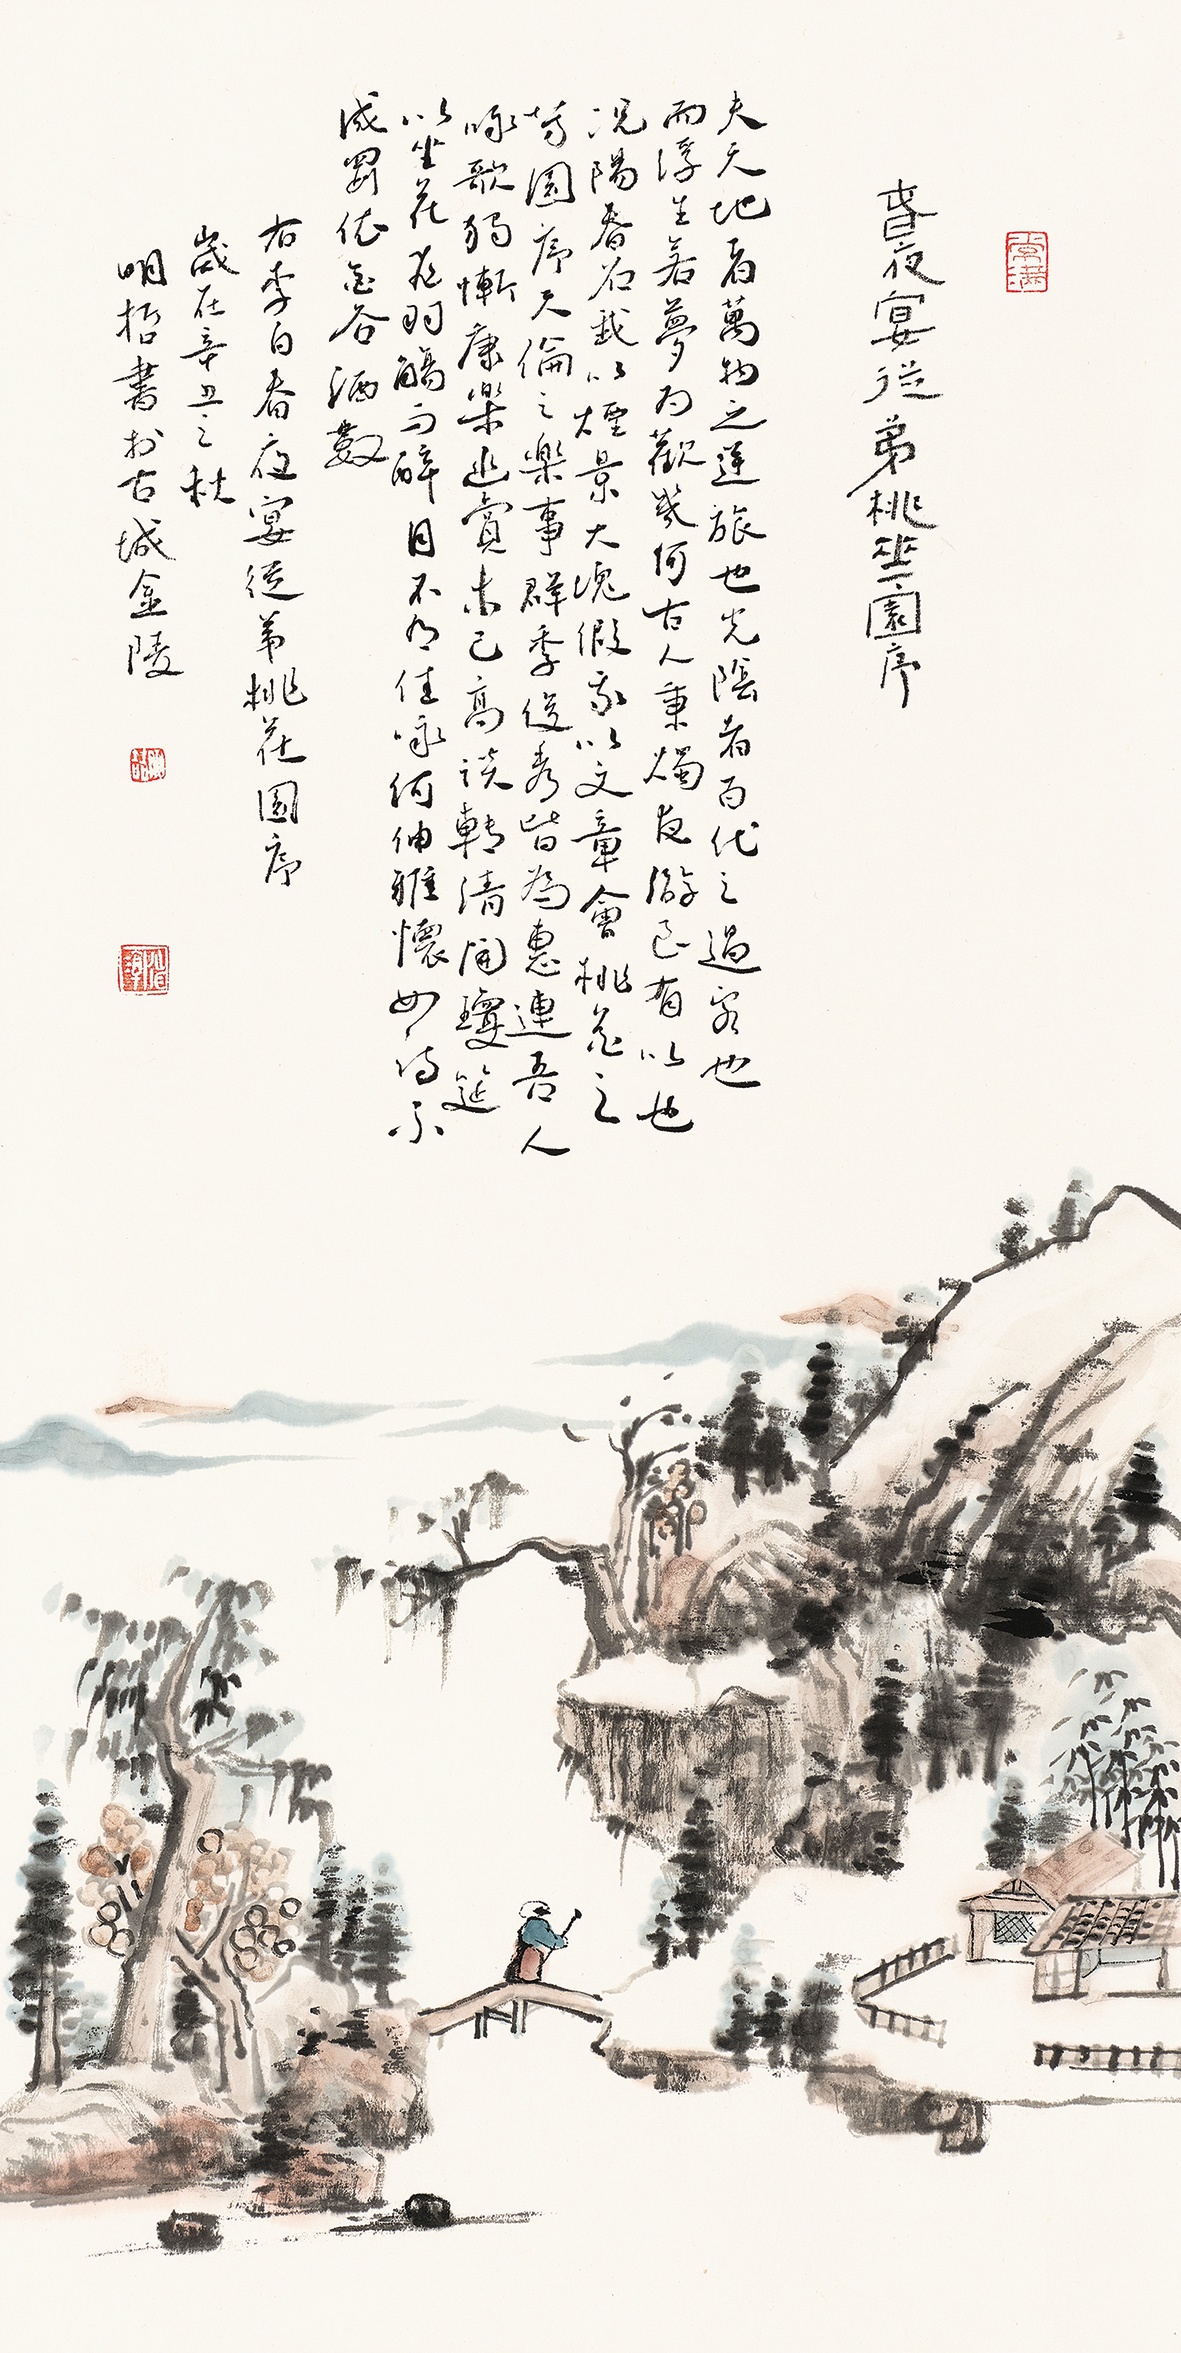 春夜宴從弟桃花園序
夫天地者萬物之逆旅也光陰者百代之過客也
而浮生若夢為歡幾何古人秉燭夜游良有以也
況陽春召我以煙景大塊假我以文章會桃花之
芳園序天倫之樂事群季俊秀皆為惠連吾人
咏歌獨慚康樂幽賞未已高談轉清開瓊筵
以坐花飛羽觴而醉月不有佳咏何伸雅懷如詩不
成罰依金谷酒數
右李白春夜宴從弟桃花園序
歲在辛丑之秋
明哲書於古城金陵